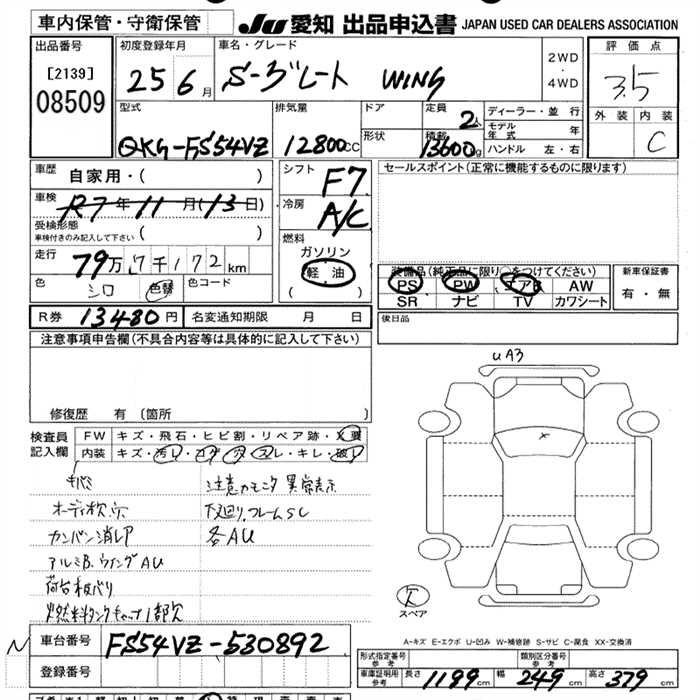 車内保管・守衛保管
JU 愛知 出品申込書 JAPAN USED CAR DEALERS ASSOCIATION
出品番号
[2139]
08509
初度登録年月
25 6月
車名・グレード
S-グレート WING
2WD
・
4WD
評価点
3.5
外装 内装
C
型式
QKG-FS54VZ
排気量
12800cc
ドア
形状
定員
2人
積載
13600kg
ディーラー・並行
モデル年式 年
ハンドル 左・右
車歴
自家用・( )
車検
R7年11月(13日)
受検形態
車検付きのみ記入して下さい
( )
走行
79万7千172km
色
シロ 色替
色コード
シフト
F7
冷房
A/C
燃料
ガソリン
軽油
( )
セールスポイント(正常に機能するものに限ります)
装備品(純正品に限り○をつけてください)
PS PW エアB AW
SR ナビ TV カワシート
新車保証書
有・無
R券 13480円
名変通知期限 月 日
後日品
注意事項申告欄(不具合内容等は具体的に記入して下さい)
修復歴 有 (箇所 )
検査員
記入欄
FW キズ・飛石・ヒビ割・リペア跡・X要
内装 キズ・汚レ・コゲ・穴・スレ・キレ・破レ
カンバン消しア
アルミB.ウィングAU
荷台板バリ
燃料タンクキャップ1部欠
注意カモニタ異常表示
下廻り.フレームSC
各AU
uA3
欠
スペア
A-キズ E-エクボ U-凹み W-補修跡 S-サビ C-腐食 XX-交換済
車台番号 FS54VZ-530892
登録番号
形式指定番号
参考
類別区分番号
参考
車庫証明用
参考
長さ 1199cm 幅 249cm 高さ 379cm